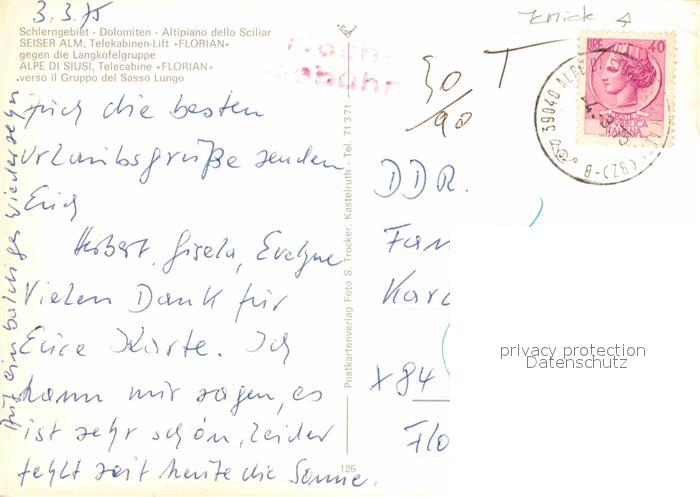 3.3.75
Knick
Schlerngebiet · Dolomiten · Altipiano dello Sciliar
SEISER ALM, Telekabinen-Lift »FLORIAN«
gegen die Langkofelgruppe
ALPE DI SIUSI, Telecabine »FLORIAN«
verso il Gruppo del Sasso Lungo
Nach-
gebühr
30
/90
T
LIRE 40
POSTE
REPUBBLICA
ITALIANA
39040 ALPE DI
(BZ) - B
Euch die besten
Urlaubsgrüße senden
Erich
Herbert, Gisela, Evelyne
Vielen Dank für
Eure Karte. Ich
kann mir sagen, es
ist sehr schön, leider
fehlt seit heute die Sonne.
Auf ein baldiges Wiedersehen
Postkartenverlag Foto S. Trocker, Kastelruth · Tel. 71371
126
DDR.
Fam
Kar
x84
Flo
privacy protection
Datenschutz